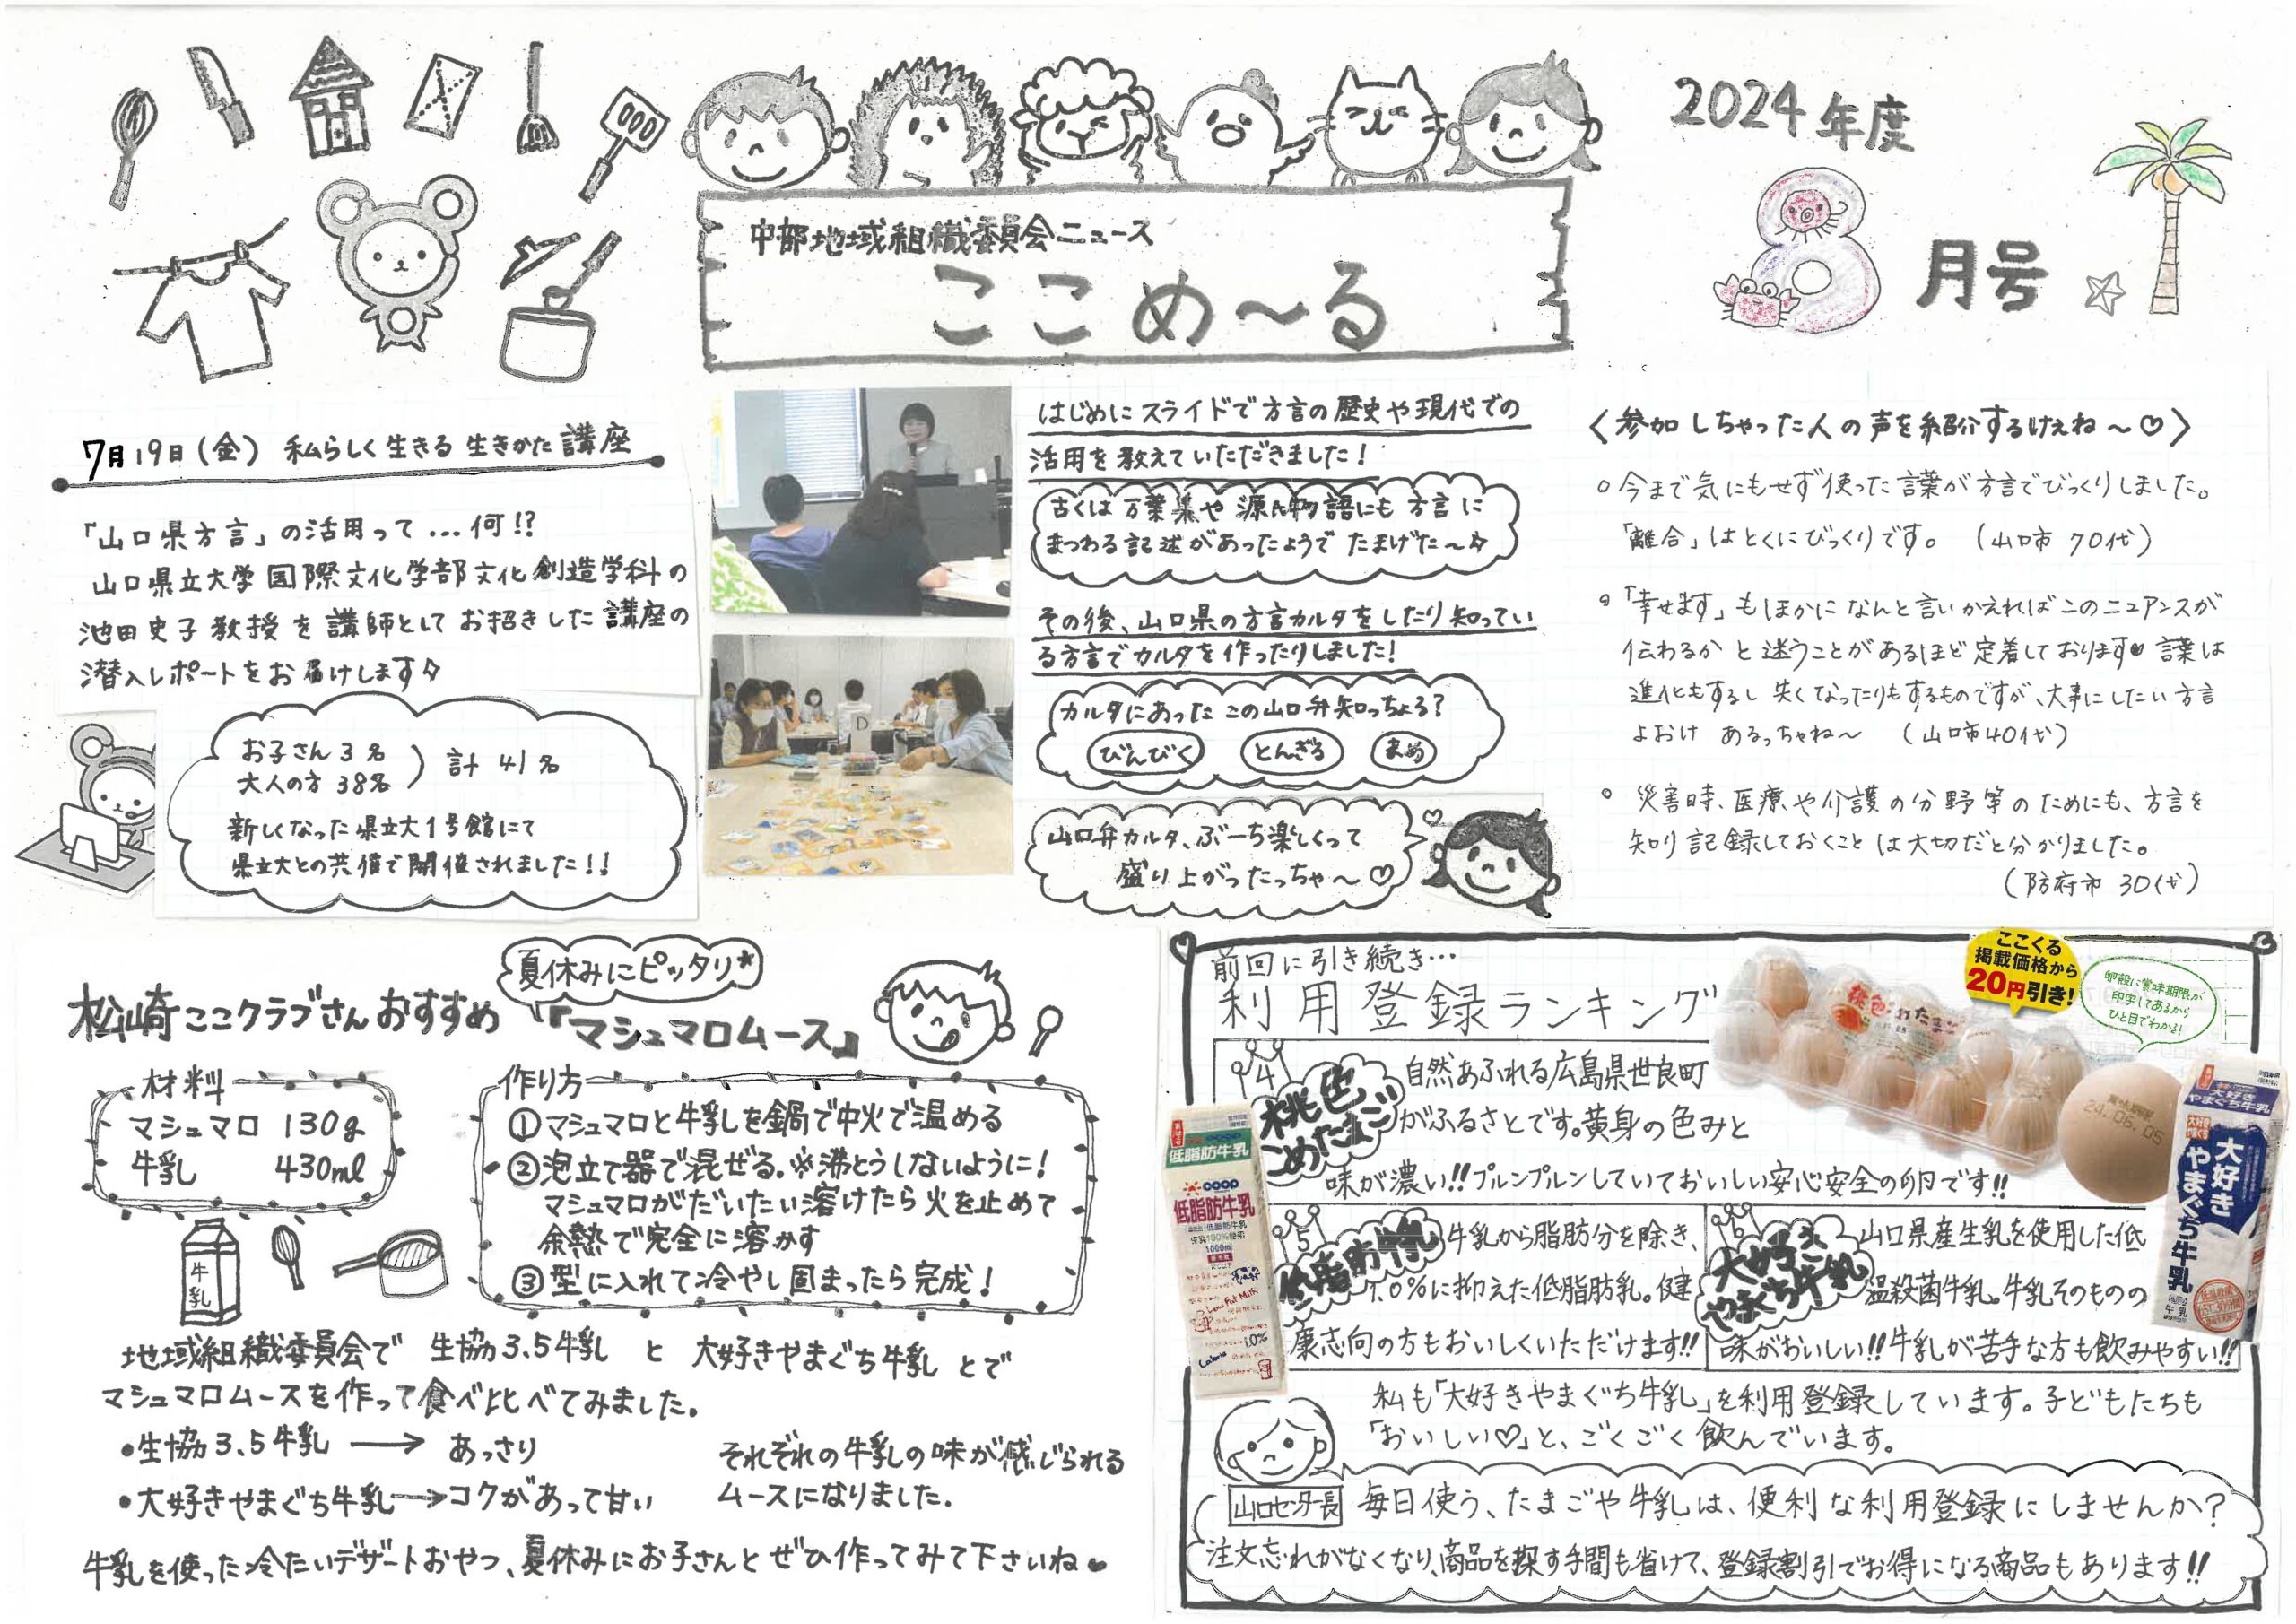 2024年度
8月号
中部地域組織委員会ニュース
ここめ～る
7月19日(金) 私らしく生きる 生きかた講座
「山口県方言」の活用って…何!?
山口県立大学国際文化学部文化創造学科の
池田史子教授を講師としてお招きした講座の
潜入レポートをお届けします
お子さん3名
大人の方38名
計 41名
新しくなった県立大1号館にて
県立大との共催で開催されました!!
はじめにスライドで方言の歴史や現代での
活用を教えていただきました!
古くは万葉集や源氏物語にも方言に
まつわる記述があったようで たまげた～
その後、山口県の方言カルタをしたり知ってい
る方言でカルタを作ったりしました!
カルタにあった この山口弁知っちょる?
びんびく とんぎる まめ
山口弁カルタ、ぶーち楽しくって
盛り上がったっちゃ～♡
D
〈参加しちゃった人の声を紹介するけぇね～♡〉
○今まで気にもせず使った言葉が方言でびっくりしました。
「離合」はとくにびっくりです。 (山口市 70代)
○「幸せます」もほかになんと言いかえればこのニュアンスが
伝わるかと迷うことがあるほど定着しております♥言葉は
進化もするし 失くなったりもするものですが、大事にしたい方言
よおけ あるっちゃね～ (山口市40代)
○ 災害時、医療や介護の分野等のためにも、方言を
知り記録しておくことは大切だと分かりました。
(防府市 30代)
松崎ここクラブさんおすすめ
夏休みにピッタリ*
『マシュマロムース』
材料
マシュマロ 130g
牛乳 430ml
牛乳
作り方
①マシュマロと牛乳を鍋で中火で温める
②泡立て器で混ぜる.※沸とうしないように!
マシュマロがだいたい溶けたら火を止めて
余熱で完全に溶かす
③型に入れて冷やし固まったら完成!
地域組織委員会で 生協3.5牛乳 と 大好きやまぐち牛乳 とで
マシュマロムースを作って食べ比べてみました。
•生協3.5牛乳 → あっさり
•大好きやまぐち牛乳→コクがあって甘い
それぞれの牛乳の味が感じられる
ムースになりました.
牛乳を使った冷たいデザートおやつ、夏休みにお子さんとぜひ作ってみて下さいね♥
前回に引き続き…
利用登録ランキング
ここくる
掲載価格から
20円引き!
卵殻に賞味期限が
印字してあるから
ひと目でわかる!
賞味期限
24.06.05
4
桃色
こめたまご
自然あふれる広島県世良町
がふるさとです。黄身の色みと
味が濃い!!プルンプルンしていておいしい安心安全の卵です!!
5
低脂肪牛乳
牛乳から脂肪分を除き、
1.0%に抑えた低脂肪乳。健
康志向の方もおいしくいただけます!!
低脂肪牛乳
低脂肪牛乳
1000ml
Low Fat Milk
1.0%
6
大好き
やまぐち牛乳
山口県産生乳を使用した低
温殺菌牛乳。牛乳そのものの
味がおいしい!!牛乳が苦手な方も飲みやすい!!
大好き
やまぐち牛乳
大好き
やまぐち牛乳
私も「大好きやまぐち牛乳」を利用登録しています。子どもたちも
「おいしい♡」と、ごくごく飲んでいます。
山口センター長
毎日使う、たまごや牛乳は、便利な利用登録にしませんか?
注文忘れがなくなり、商品を探す手間も省けて、登録割引でお得になる商品もあります!!